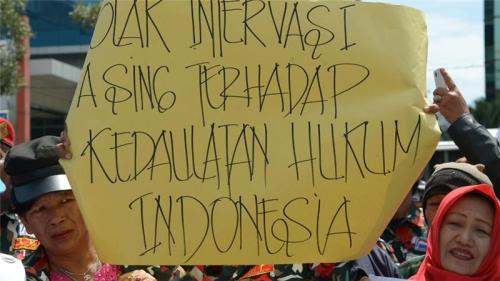 OLAK INTERVASI
ASING TERHADAP
KEDAULATAN HUKUM
INDONESIA